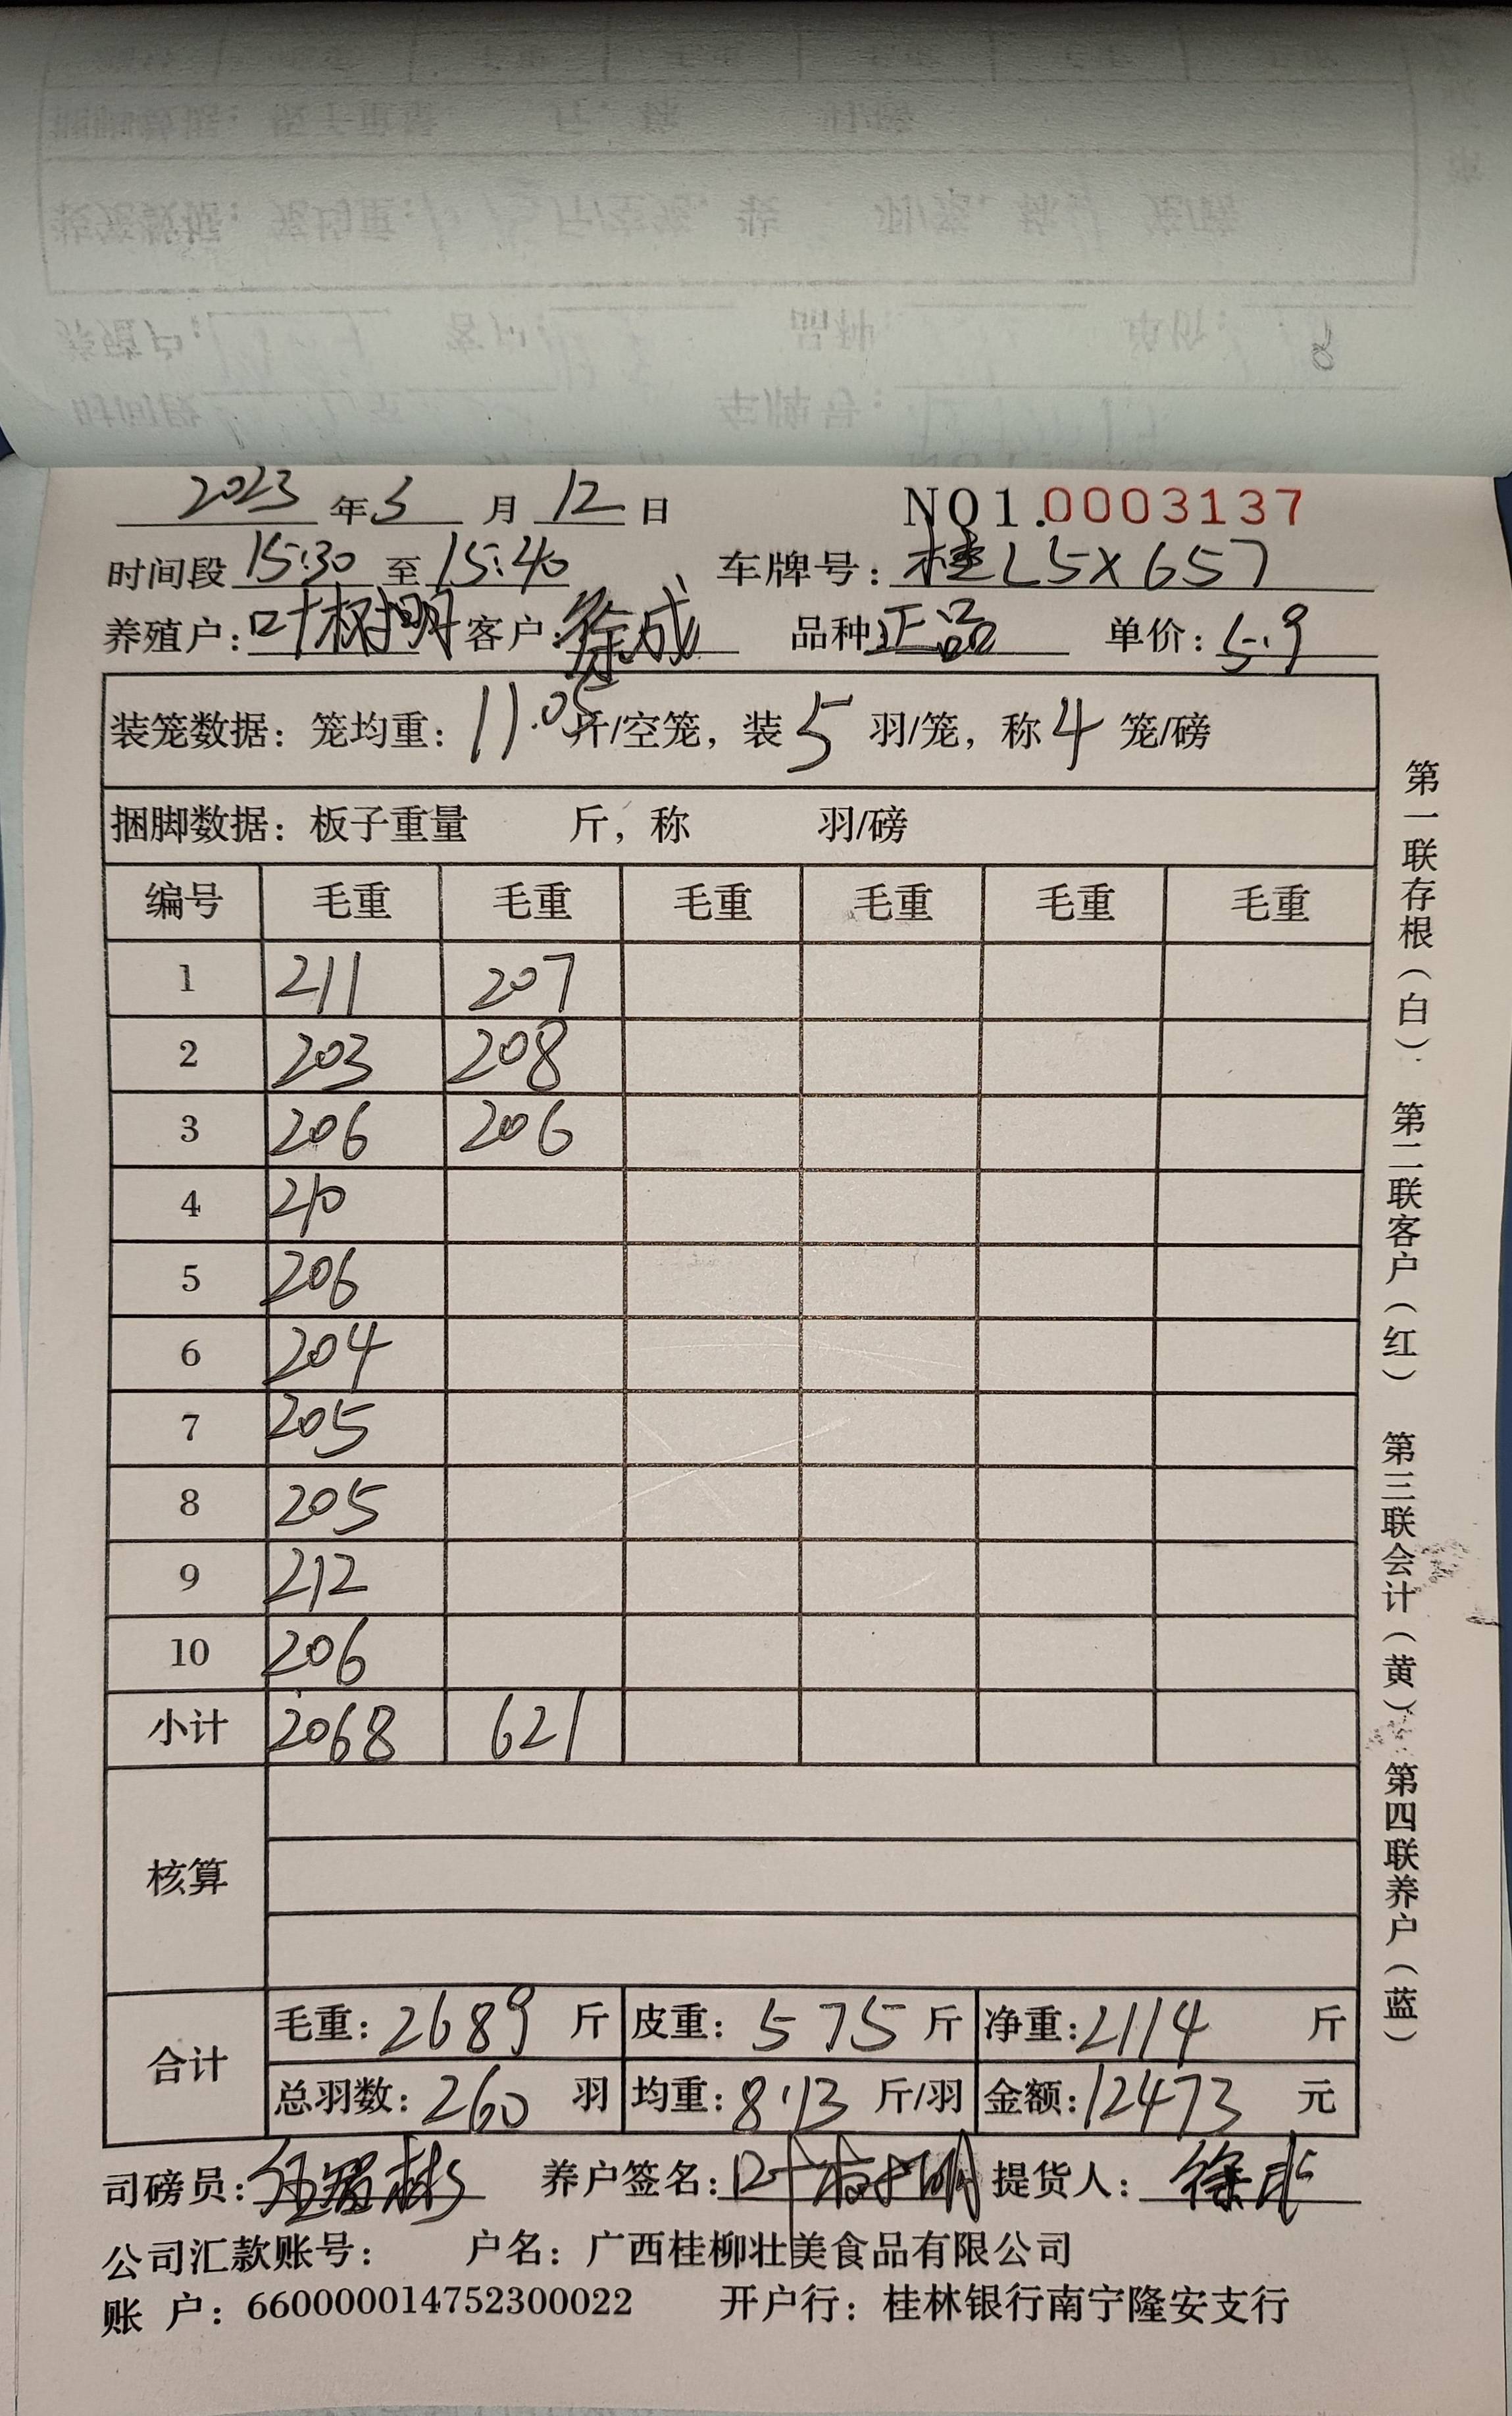 2023 年 3 月 12 日 NO1.0003137
时间段 15:30 至 15:40 车牌号: 桂L5X657
养殖户: 叶树明 客户: 徐成 品种 正品 单价: 5.9
装笼数据: 笼均重: 11.05 斤/空笼, 装 5 羽/笼, 称 4 笼/磅
捆脚数据: 板子重量 斤, 称 羽/磅
编号 毛重 毛重 毛重 毛重 毛重 毛重
1 211 207
2 203 208
3 206 206
4 210
5 206
6 204
7 205
8 205
9 212
10 206
小计 2068 621
核算
合计 毛重: 2689 斤 皮重: 575 斤 净重: 2114 斤
总羽数: 260 羽 均重: 8.13 斤/羽 金额: 12473 元
司磅员: 养户签名: 叶树明 提货人: 徐成
公司汇款账号: 户名: 广西桂柳壮美食品有限公司
账 户: 660000014752300022 开户行: 桂林银行南宁隆安支行
第一联存根(白) 第二联客户(红) 第三联会计(黄) 第四联养户(蓝)